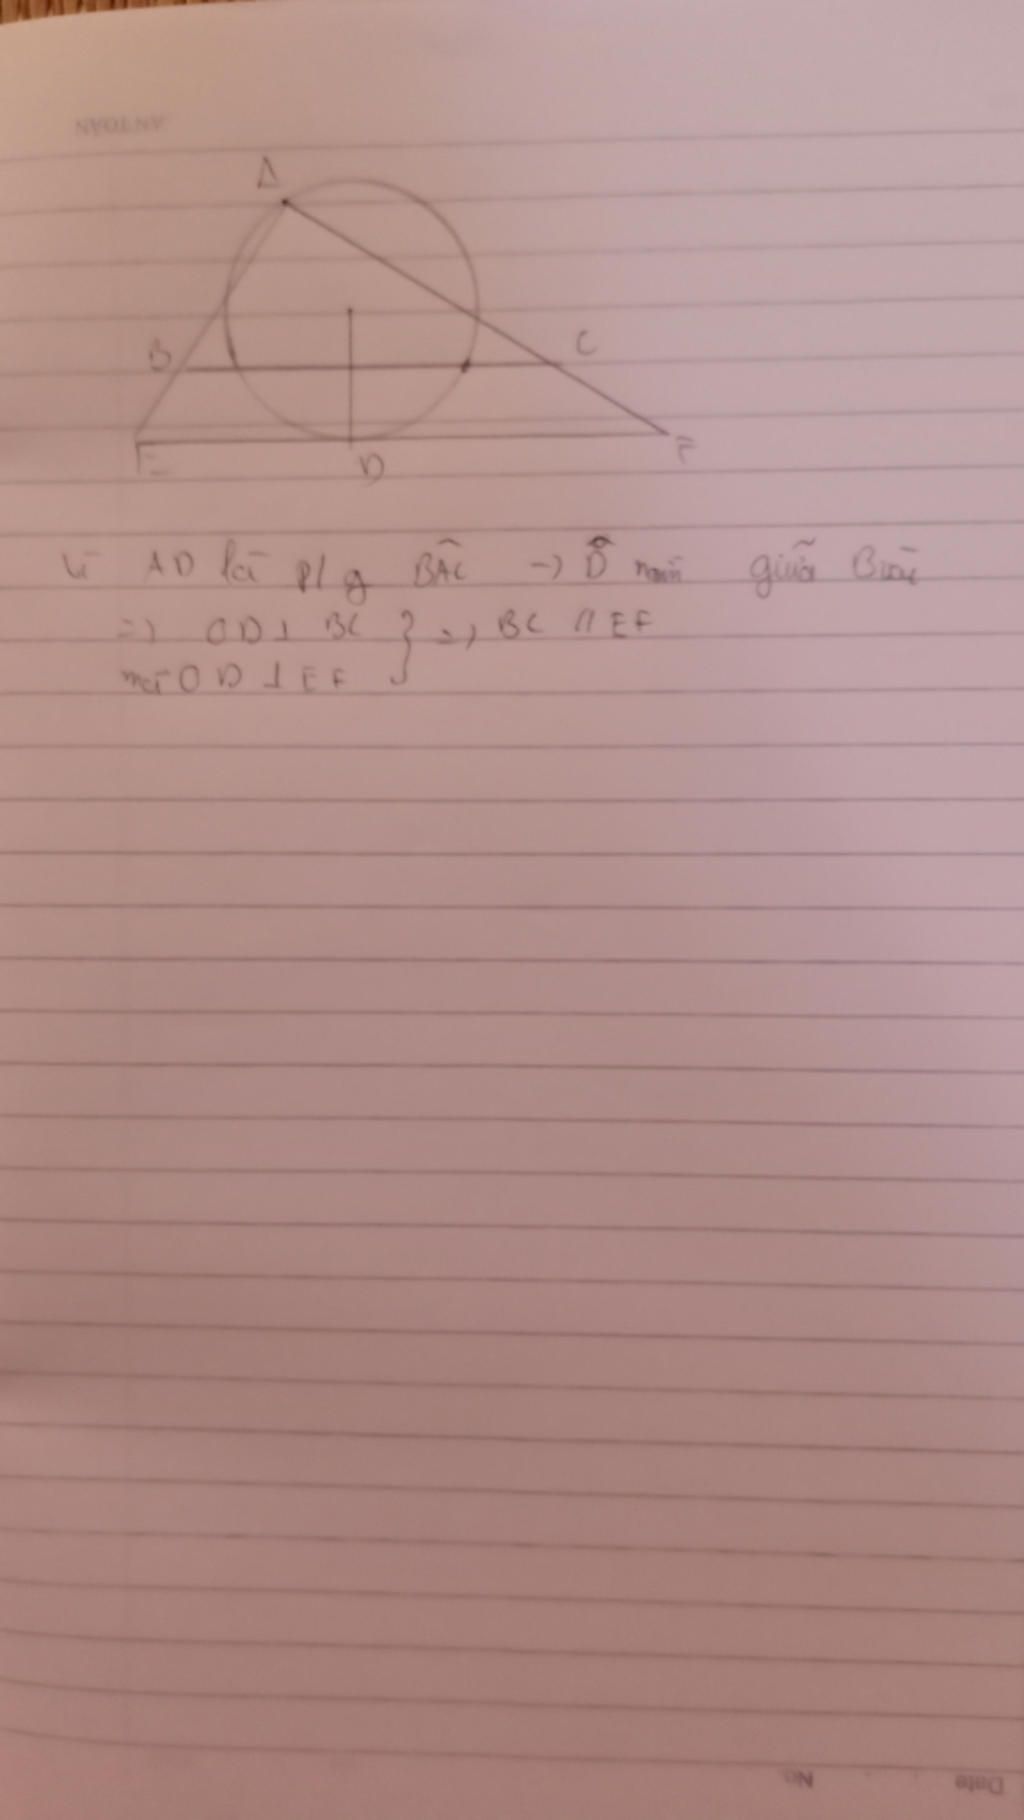 AN TOÀN
A
B
C
E
D
F
Vì AD là p/g BÂC → D̂ nằm giữa
=> OD ⊥ BC } => BC // EF
mà OD ⊥ EF
No.
Date